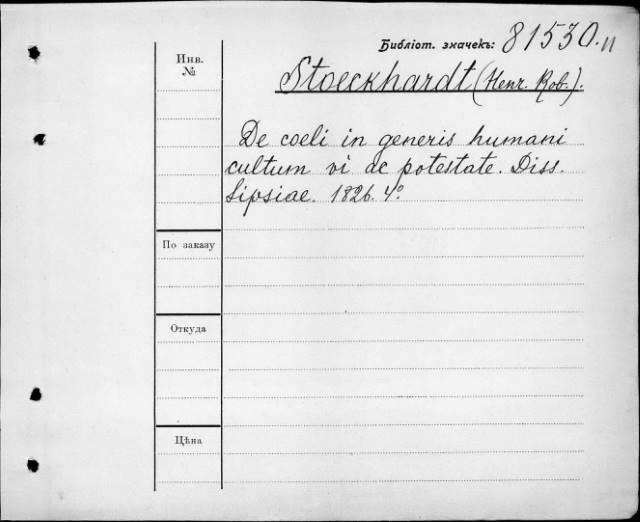 Библіот. значекъ: 81530.п
Инв.
№
Stoeckhardt (Henr. Rob.).
De coeli in generis humani
cultum vi ac potestate. Diss.
Lipsiae. 1826. 4º
По заказу
Откуда
Цѣна